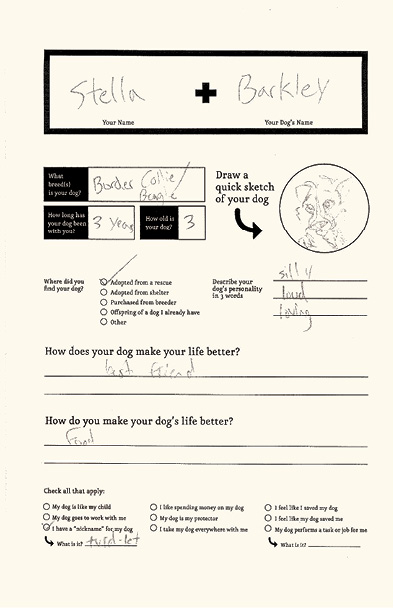 Stella + Barkley
Your Name Your Dog's Name
What breed(s) is your dog? Border Collie/ Beagle
How long has your dog been with you? 3 years
How old is your dog? 3
Draw a quick sketch of your dog
Where did you find your dog?
Adopted from a rescue
Adopted from shelter
Purchased from breeder
Offspring of a dog I already have
Other
Describe your dog's personality in 3 words
silly
loud
loving
How does your dog make your life better?
best friend
How do you make your dog's life better?
Food
Check all that apply:
My dog is like my child
My dog goes to work with me
I have a "nickname" for my dog
What is it? turd-let
I like spending money on my dog
My dog is my protector
I take my dog everywhere with me
I feel like I saved my dog
I feel like my dog saved me
My dog performs a task or job for me
What is it?